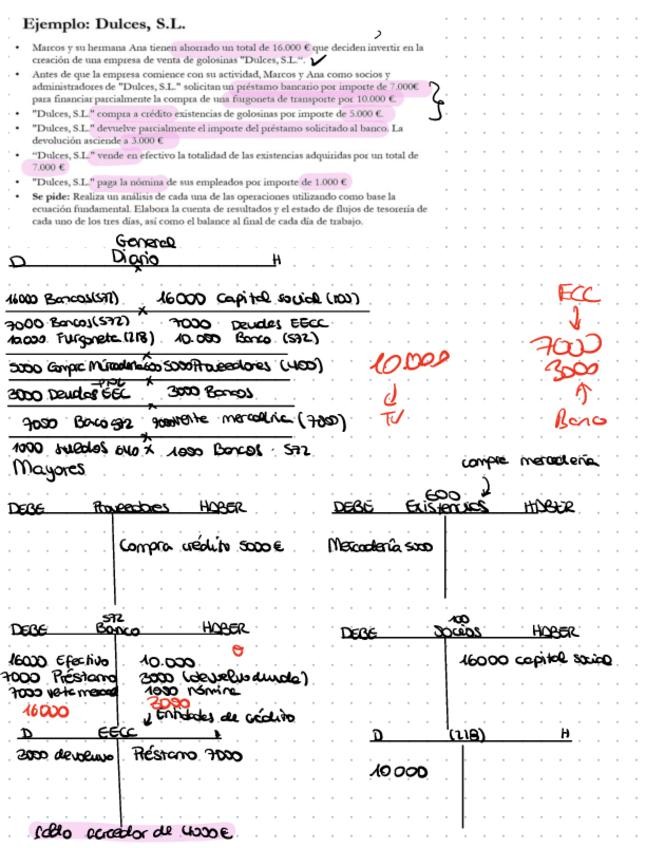 Ejemplo: Dulces, S.L.
• Marcos y su hermana Ana tienen ahorrado un total de 16.000 € que deciden invertir en la
creación de una empresa de venta de golosinas "Dulces, S.L.".
• Antes de que la empresa comience con su actividad, Marcos y Ana como socios y
administradores de "Dulces, S.L." solicitan un préstamo bancario por importe de 7.000€
para financiar parcialmente la compra de una furgoneta de transporte por 10.000 €.
• "Dulces, S.L." compra a crédito existencias de golosinas por importe de 5.000 €.
• "Dulces, S.L." devuelve parcialmente el importe del préstamo solicitado al banco. La
devolución asciende a 3.000 €
• "Dulces, S.L." vende en efectivo la totalidad de las existencias adquiridas por un total de
7.000 €
• "Dulces, S.L." paga la nómina de sus empleados por importe de 1.000 €
• Se pide: Realiza un análisis de cada una de las operaciones utilizando como base la
ecuación fundamental. Elabora la cuenta de resultados y el estado de flujos de tesorería de
cada uno de los tres días, así como el balance al final de cada día de trabajo.
General
D Diario H
16000 Bancos(572) x 16000 Capital social (100)
7000 Bancos(572) 7000 Deudas EECC
10.000 Furgoneta (218) 10.000 Banco (572)
5000 5000 Proveedores (400)
3000 Deudas EEC 3000 Bancos
7000 Banco 572 mercadería (700)
1000 Sueldos 640 x 1000 Bancos 572
10000
TV
ECC
7000
3000
Banco
Mayores
compra mercadería
DEBE Proveedores HABER
Compra crédito 5000 €
600
DEBE Existencias HABER
Mercadería 5000
572
DEBE Banco HABER
16000 Efectivo 10.000
7000 Préstamo 3000 (devuelvo deuda)
7000 1000 nómina
16000 3000
100
DEBE Socios HABER
16000 capital social
Entidades de crédito
D EECC
3000 devuelvo Préstamo 7000
saldo acreedor de 4000 €
D (218) H
10000